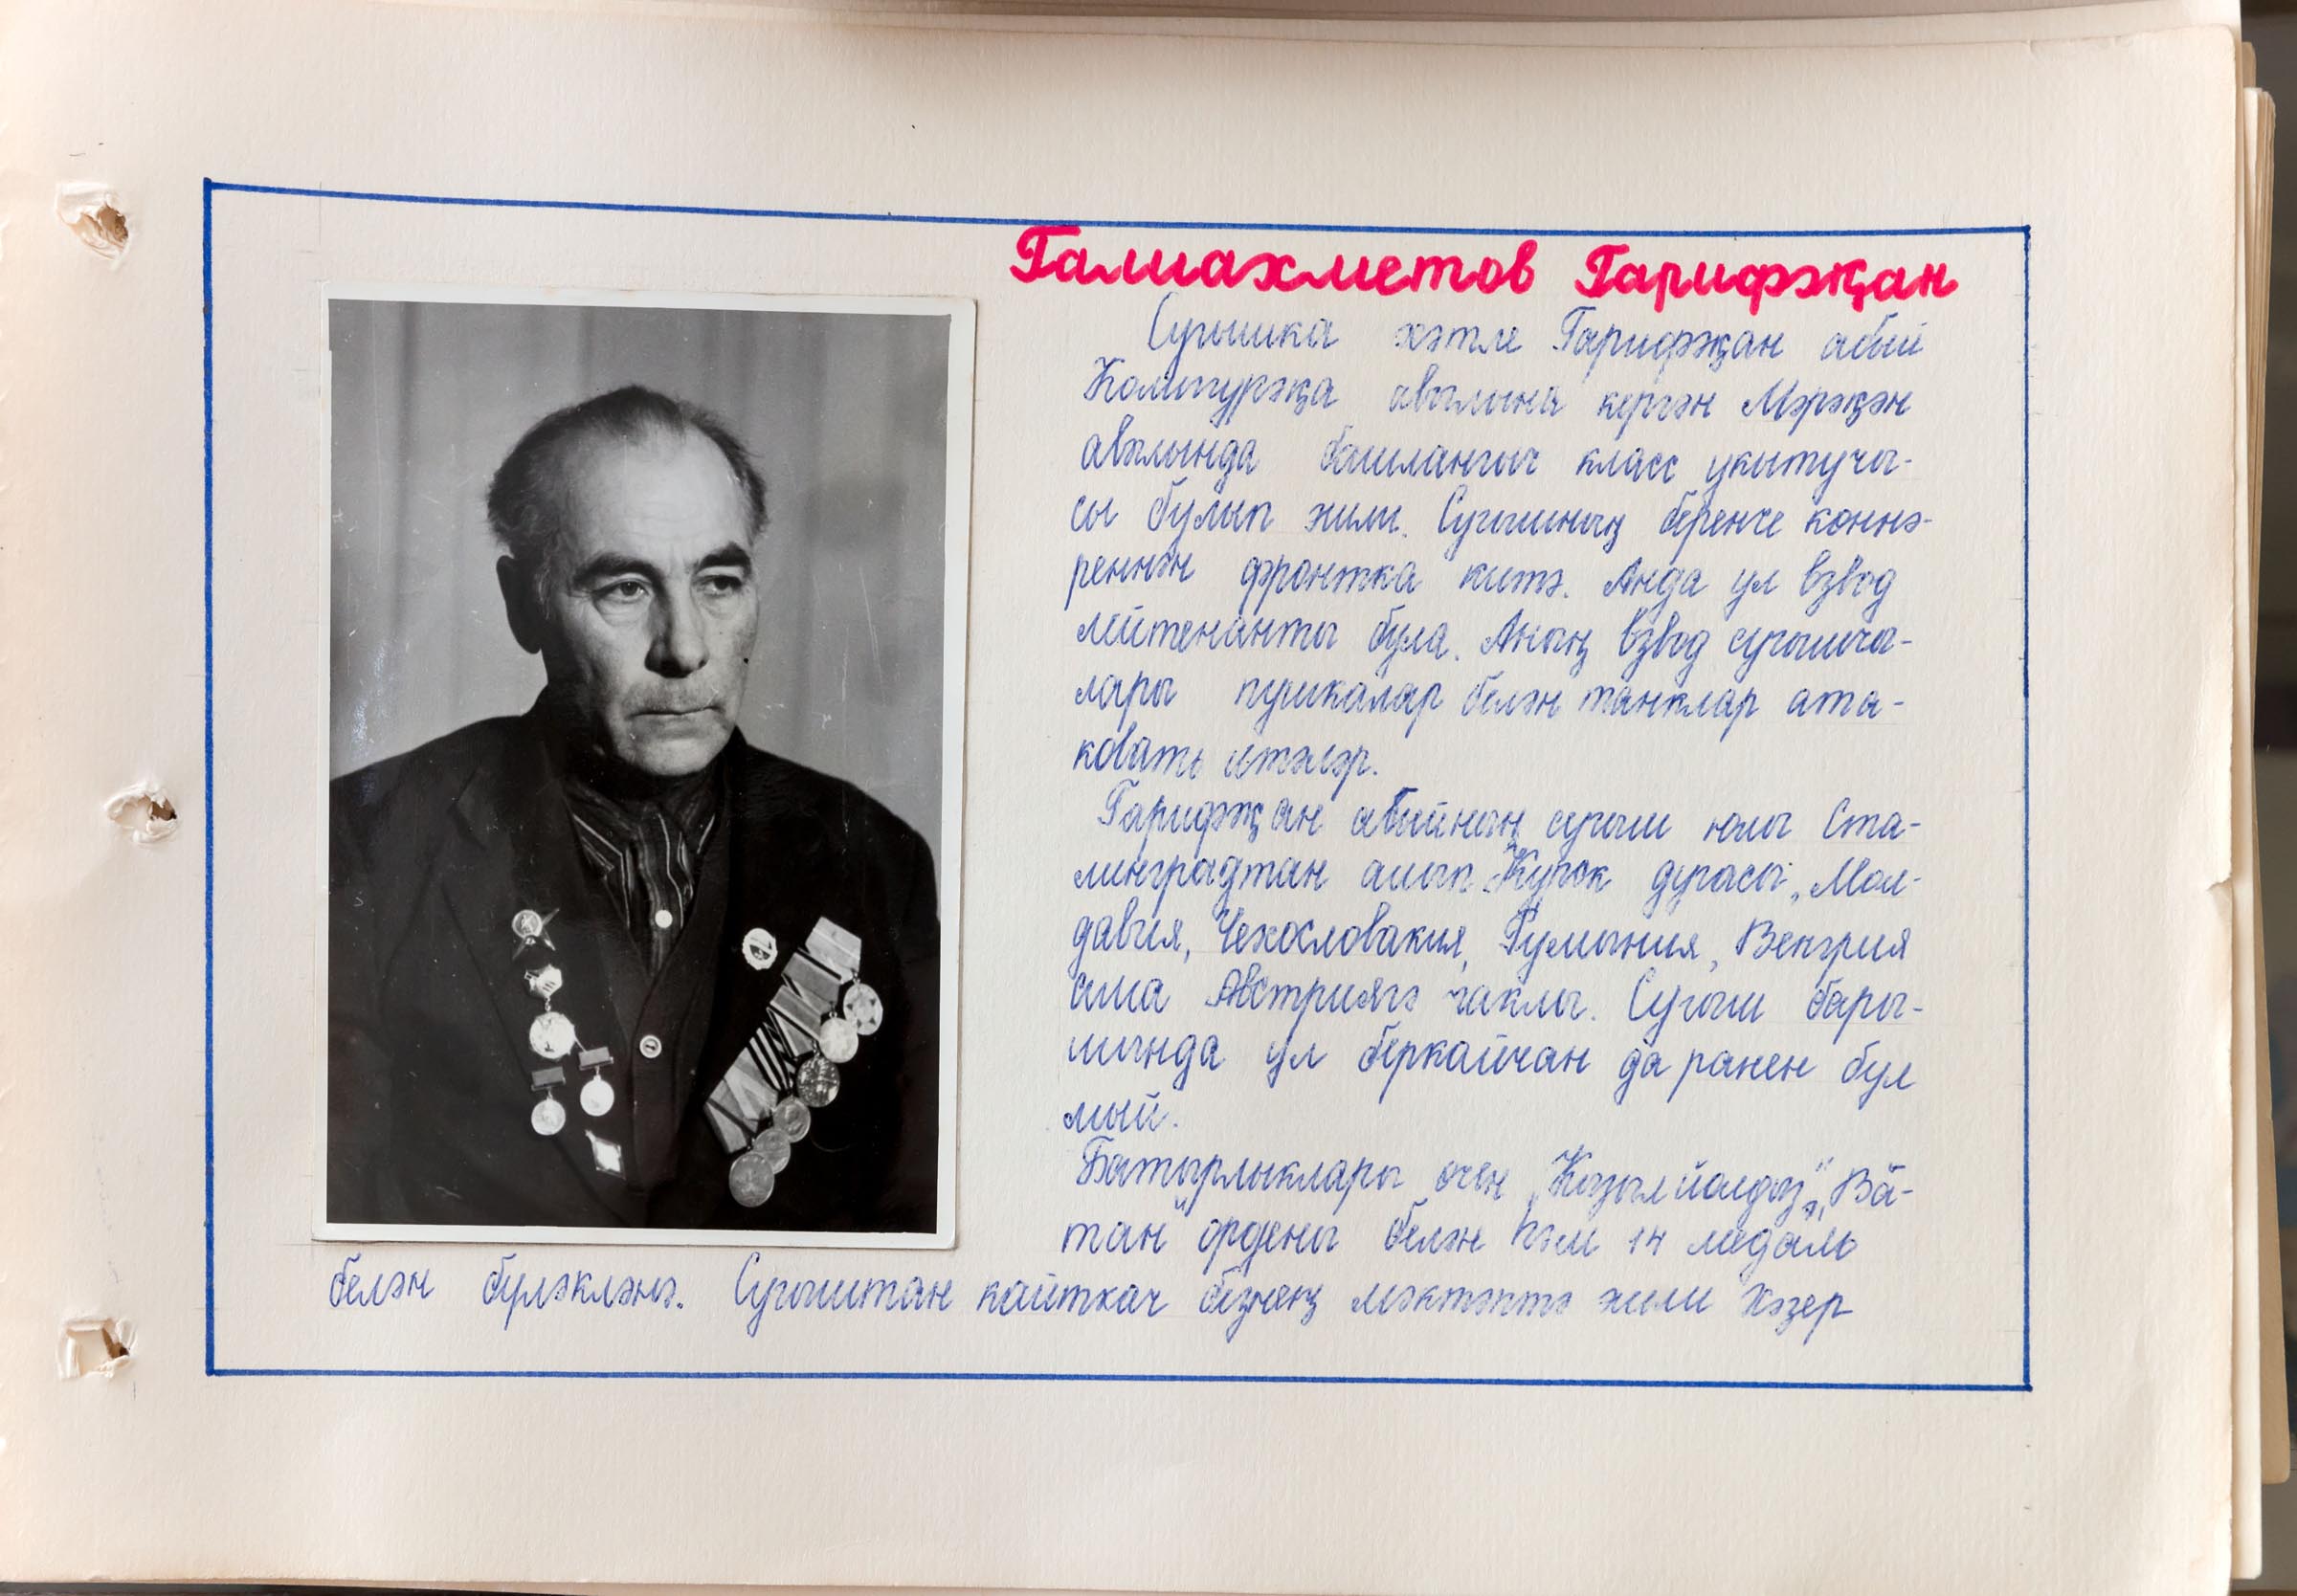 Галиахметов Гарифҗан
Сугышка хәтле Гарифҗан абый
авылына кергән Мәрҗән
авылында башлангыч класс укытучы-
сы булып эшли. Сугышның беренче көннә-
реннән фронтка китә. Анда ул взвод
лейтенанты була. Аның взвод сугышчы-
лары пушкалар белән танклар ата-
ковать итәләр.
Гарифҗан абыйның сугыш юлы Ста-
линградтан алып Курск дугасы, Мол-
давия, Чехословакия, Румыния, Венгрия
аша Австриягә чаклы. Сугыш бары-
шында ул беркайчан да ранен бул
мый.
Батырлыклары өчен „Кызыл йолдыз", „Ва-
тан" ордены белән һәм 14 медаль
белән бүләкләнә. Сугыштан кайткач безнең мәктәптә эшли Хәзер